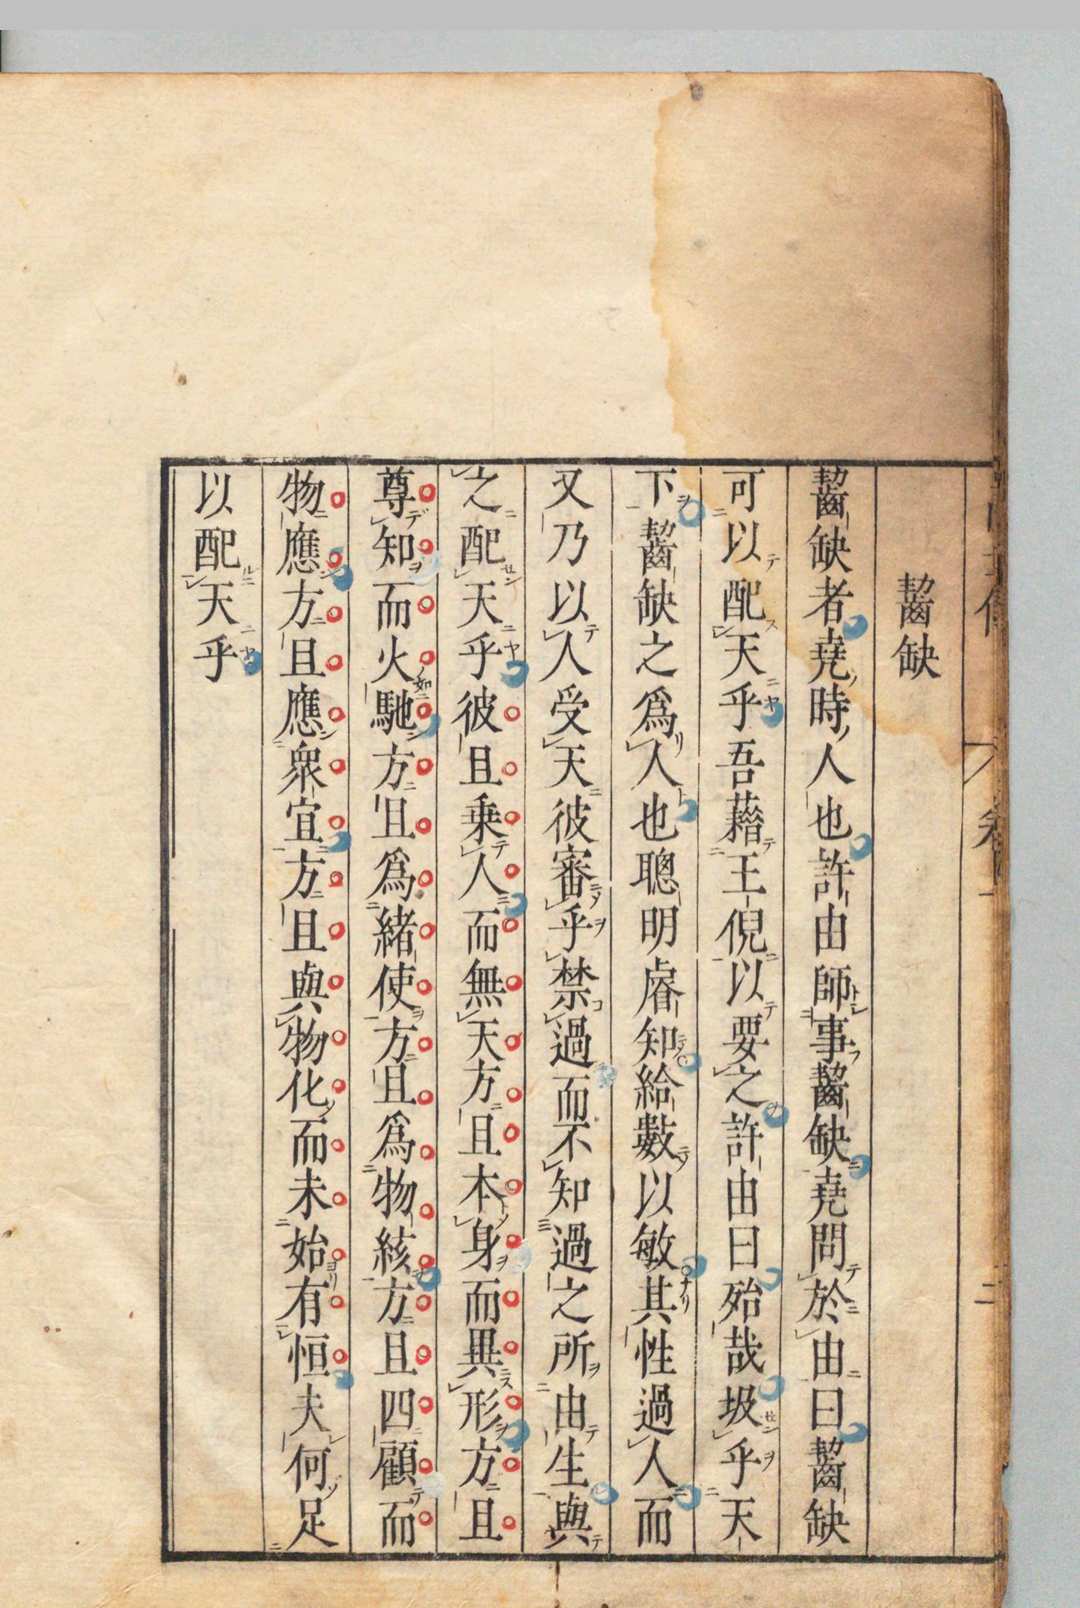 齧缺
齧缺者堯時人也許由師事齧缺堯問於由曰齧缺
可以配天乎吾藉王倪以要之許由曰殆哉圾乎天
下齧缺之爲人也聰明睿知給數以敏其性過人而
又乃以人受天彼審乎禁過而不知過之所由生與
之配天乎彼且乗人而無天方且本身而異形方且
尊知而火馳方且爲緒使方且爲物絯方且四顧而
物應方且應衆宜方且與物化而未始有恒夫何足
以配天乎